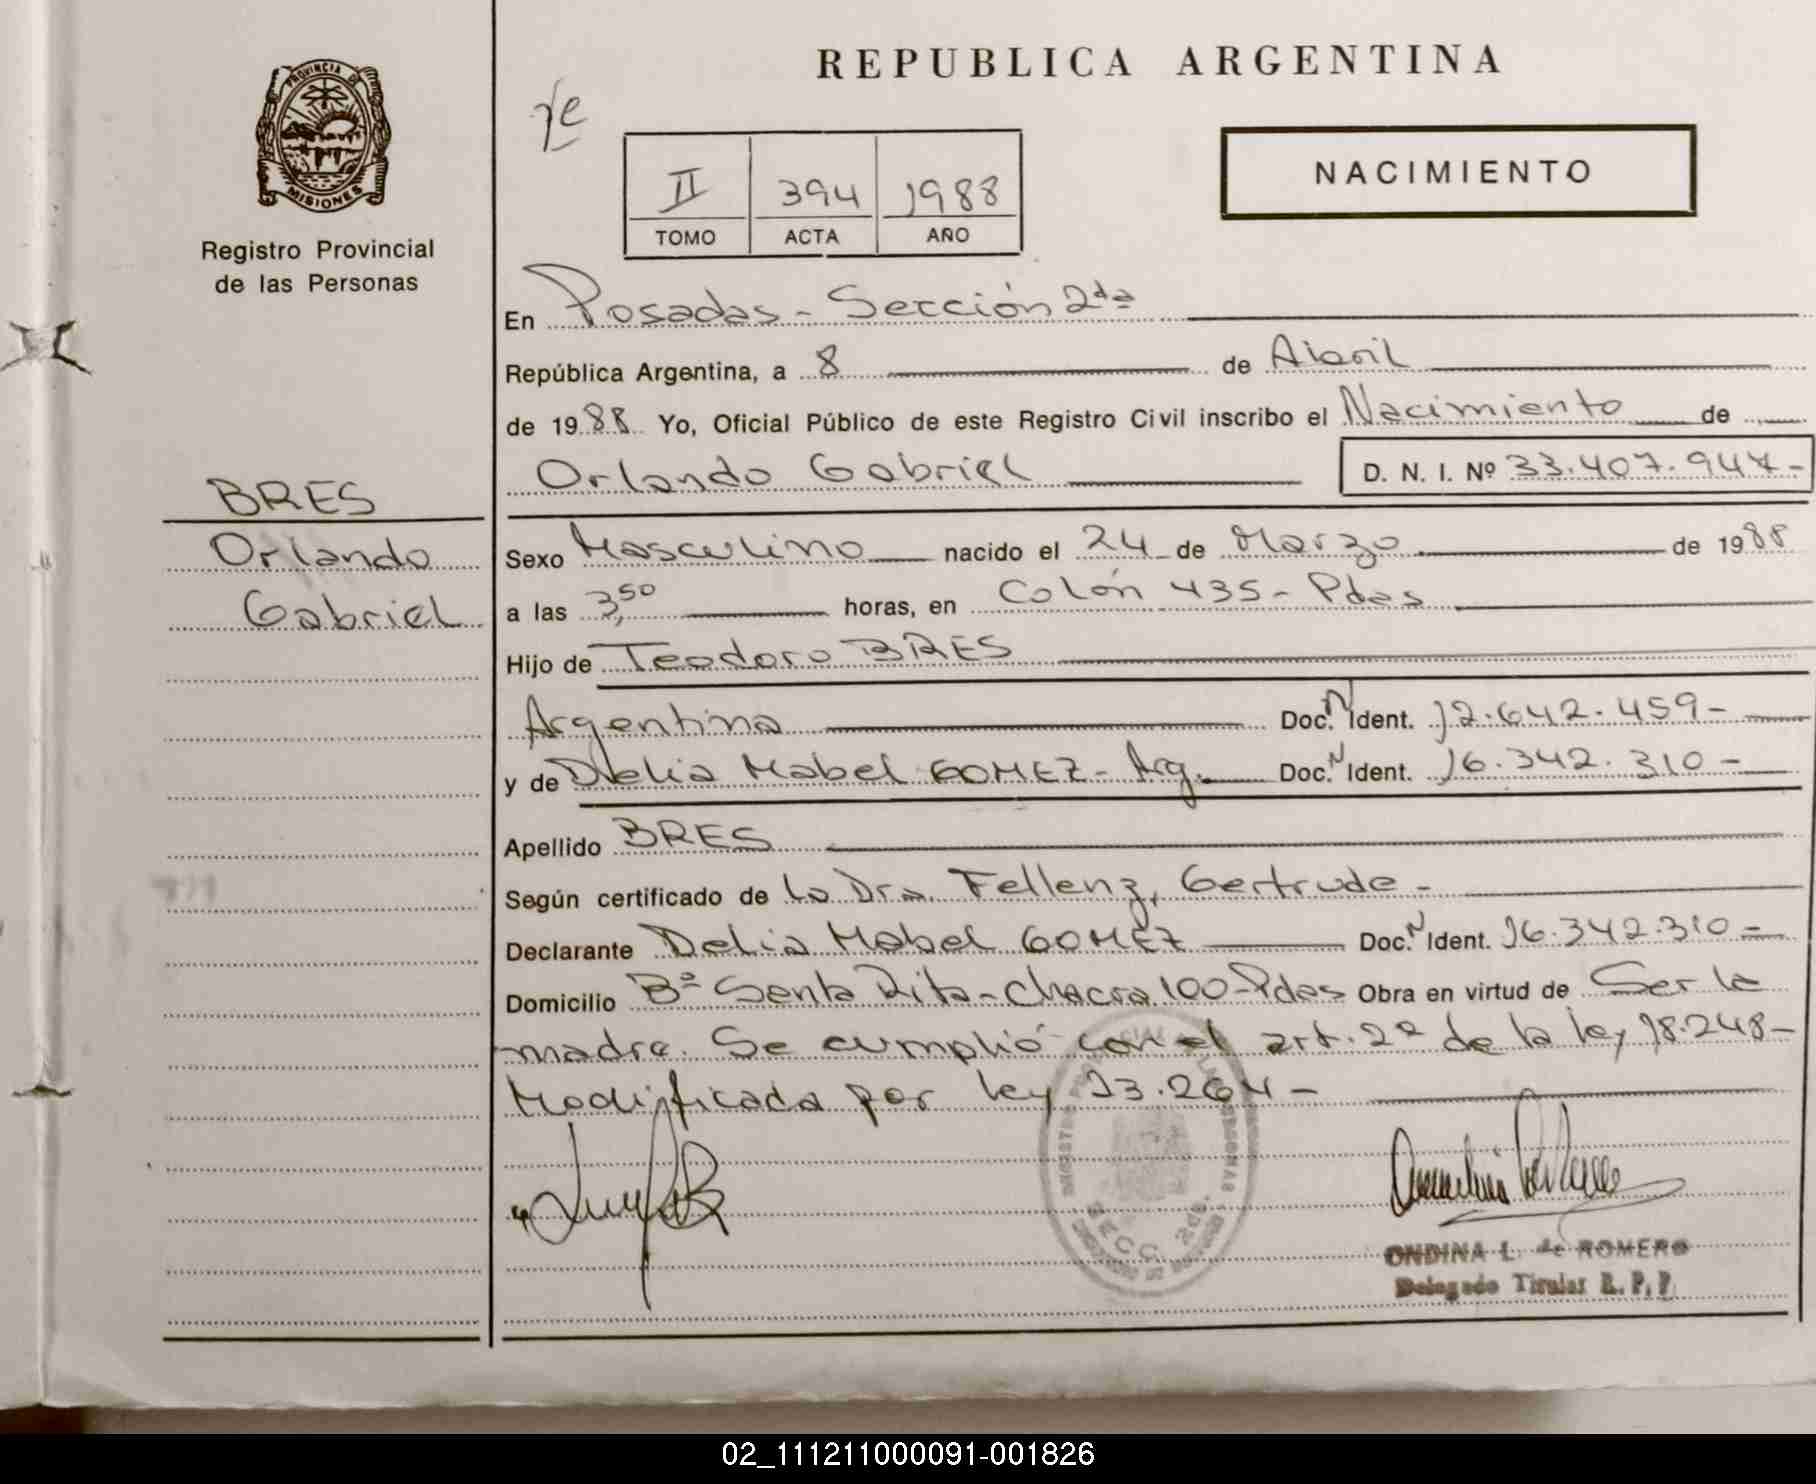 REPUBLICA ARGENTINA
PROVINCIA DE
MISIONES
Registro Provincial
de las Personas
II 394 1988
TOMO ACTA AÑO
NACIMIENTO
En Posadas - Sección 2da
República Argentina, a 8 de Abril
de 1988 Yo, Oficial Público de este Registro Civil inscribo el Nacimiento de
Orlando Gabriel D. N. I. Nº 33.407.947-
BRES
Orlando
Gabriel
Sexo Masculino nacido el 24 de Marzo de 1988
a las 3,50 horas, en Colón 435 - Pdas
Hijo de Teodoro BRES
Argentina Doc. N Ident. 12.642.459-
y de Delia Mabel GOMEZ - Arg. Doc. N Ident. 16.342.310-
Apellido BRES
Según certificado de la Dra. Fellenz, Gertrude -
Declarante Delia Mabel GOMEZ Doc. N Ident. 16.342.310-
Domicilio Bº Santa Rita - Chacra 100 - Pdas Obra en virtud de Ser la
madre. Se cumplió con el art. 2º de la ley 18.248-
Modificada por ley 23.264-
SECC. 2da.
ONDINA L. de ROMERO
Delegado Titular R. P. P.
02_111211000091-001826